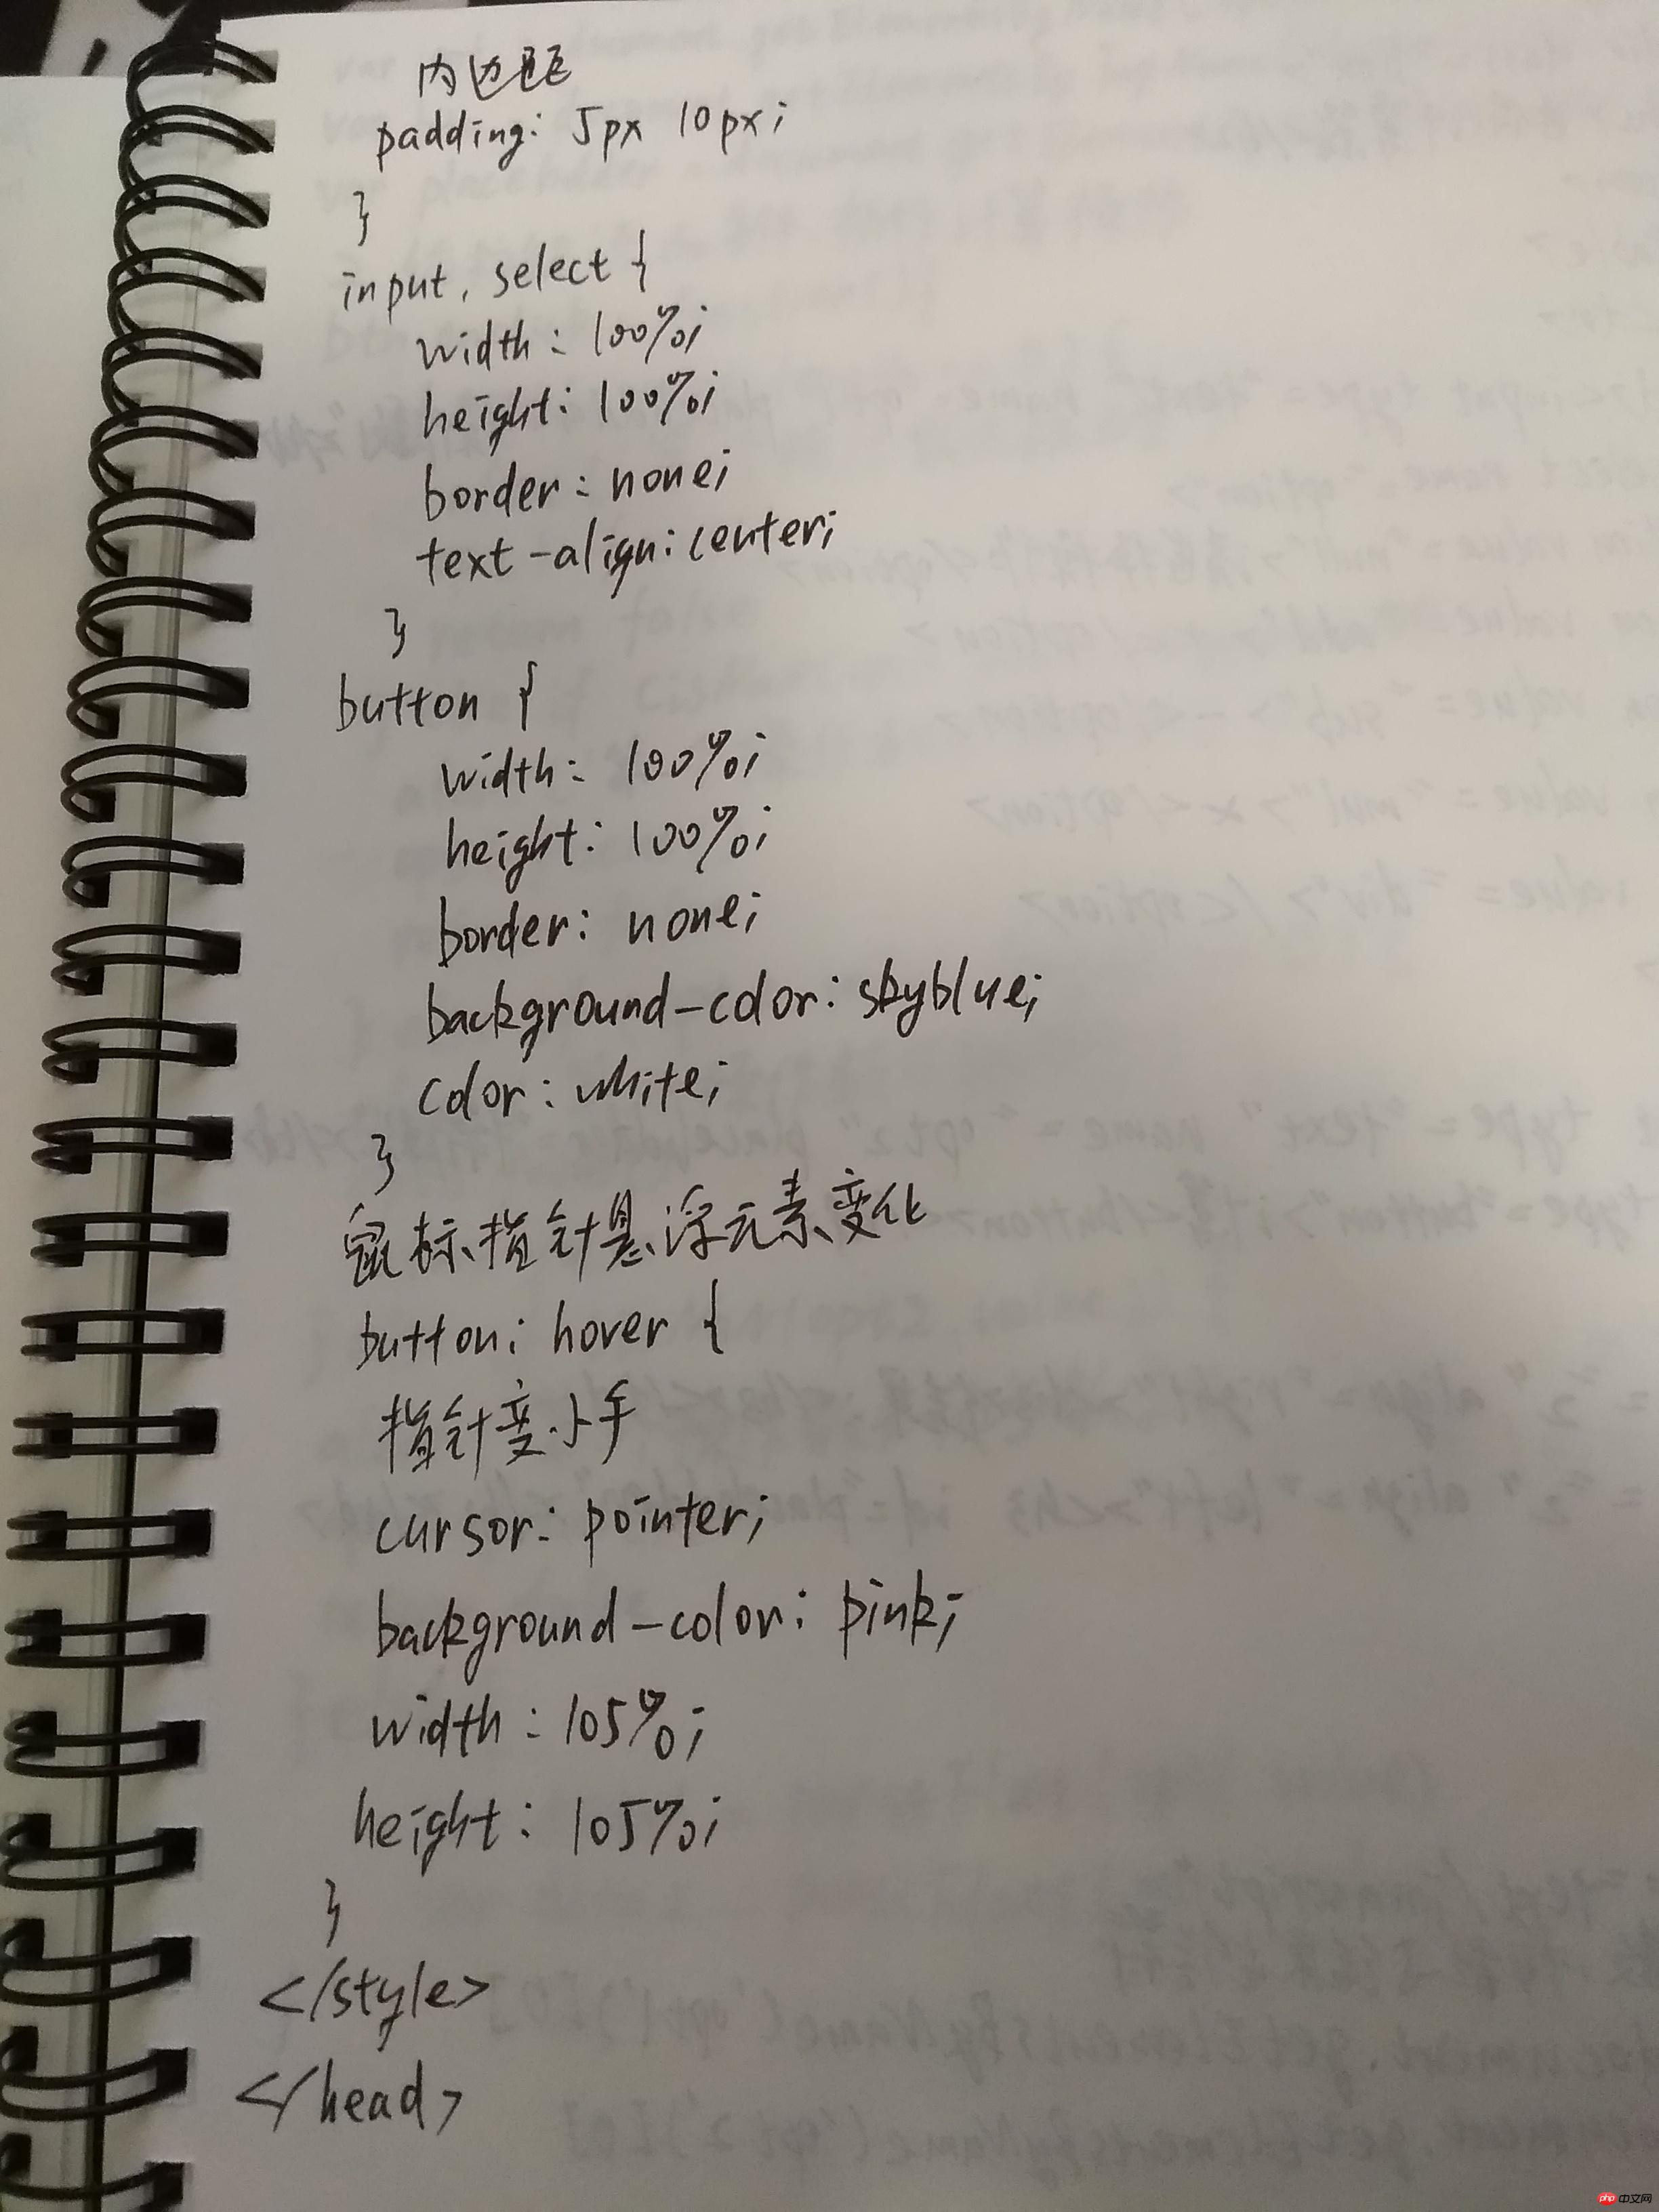 内边距
padding: 5px 10px;
}
input, select {
width: 100%;
height: 100%;
border: none;
text-align: center;
}
button {
width: 100%;
height: 100%;
border: none;
background-color: skyblue;
color: white;
}
鼠标指针悬浮元素变化
button: hover {
指针变小手
cursor: pointer;
background-color: pink;
width: 105%;
height: 105%;
}
</style>
</head>
php 中文网